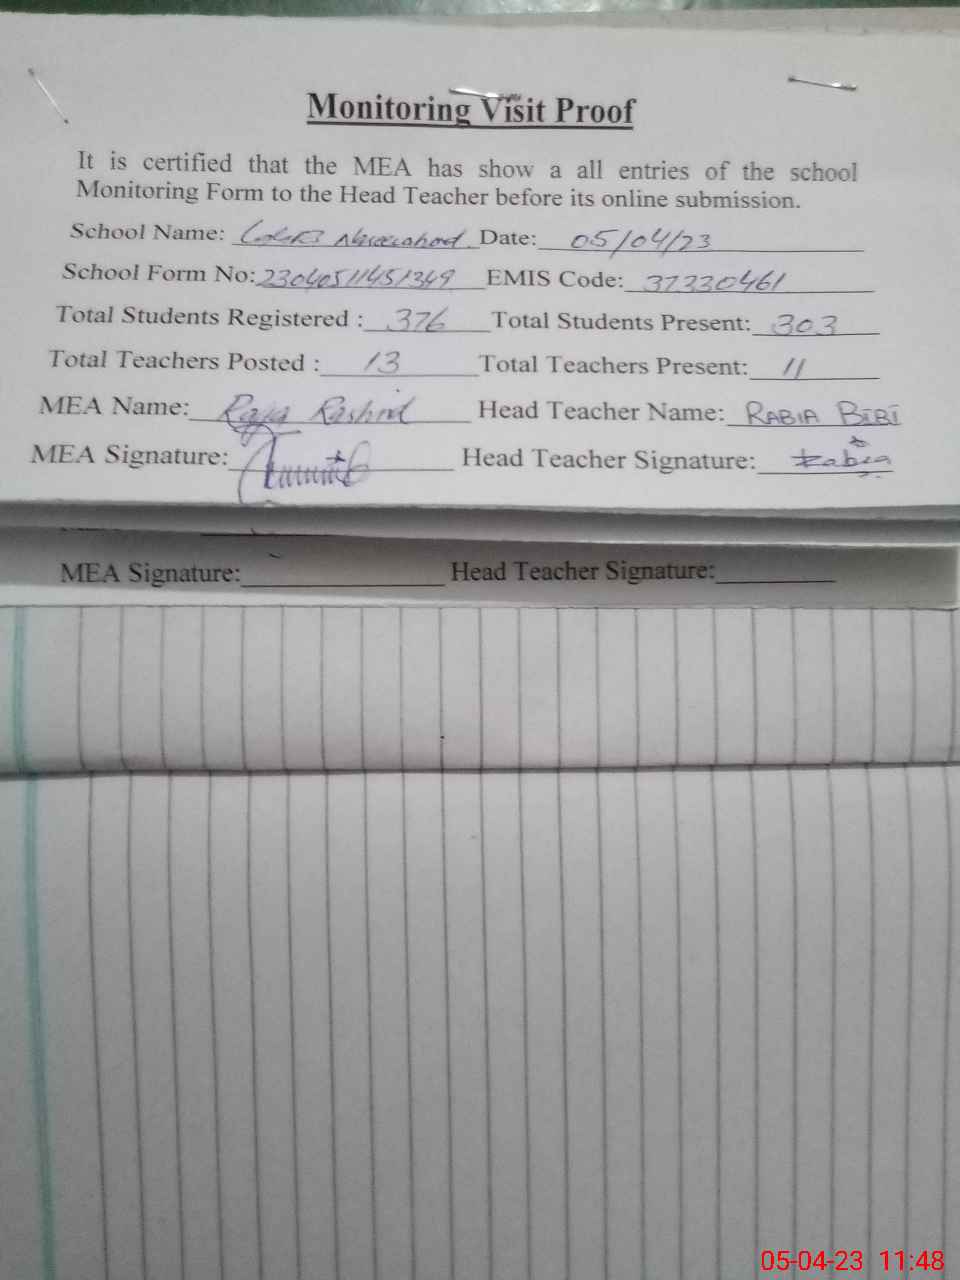 Monitoring Visit Proof
It is certified that the MEA has show a all entries of the school
Monitoring Form to the Head Teacher before its online submission.
School Name: Date: 05/04/23
School Form No: 23040511451349 EMIS Code: 37330461
Total Students Registered : 376 Total Students Present: 303
Total Teachers Posted : 13 Total Teachers Present: 11
MEA Name: Raja Rashid Head Teacher Name: RABIA BIBI
MEA Signature: Head Teacher Signature: Rabia
MEA Signature: Head Teacher Signature:
05-04-23 11:48